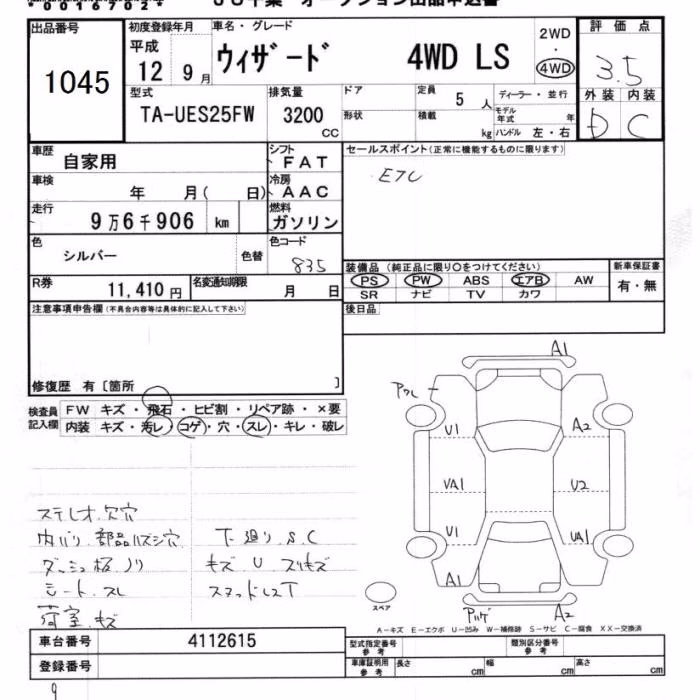 *00167024*
JU千葉 オークション出品申込書
出品番号
1045
初度登録年月
平成
12 9月
車名・グレード
ウィザード 4WD LS
2WD
・
4WD
評価点
3.5
外装 内装
D C
型式
TA-UES25FW
排気量
3200
CC
ドア
形状
定員
5 人
積載
kg
ディーラー・並行
モデル年式 年
ハンドル 左・右
車歴
自家用
シフト
FAT
車検
年 月( 日)
冷房
AAC
走行
9万6千906 km
燃料
ガソリン
色
シルバー
色替
色コード
835
R券
11,410 円
名変通知期限
月 日
セールスポイント(正常に機能するものに限ります)
ETC
装備品 (純正品に限り○をつけてください)
PS PW ABS エアB AW
SR ナビ TV カワ
新車保証書
有・無
後日品
注意事項申告欄(不具合内容等は具体的に記入して下さい)
修復歴 有〔箇所 〕
検査員記入欄
FW キズ・飛石・ヒビ割・リペア跡・×要
内装 キズ・汚レ・コゲ・穴・スレ・キレ・破レ
ステレオ.欠穴
内バリ.部品ハズシ穴
ダッシュ板ノリ
シート.スレ
荷室.キズ
下廻り.S.C
キズ U スリキズ
スタッドレスT
A1
アクレ
U1
A2
VA1
U2
V1
UA1
A1
スペア
A2
A-キズ E-エクボ U-凹み W-補修跡 S-サビ C-腐食 XX-交換済
車台番号
4112615
登録番号
型式指定番号
参考
類別区分番号
参考
車庫証明用
参考
長さ cm
幅 cm
高さ cm
9